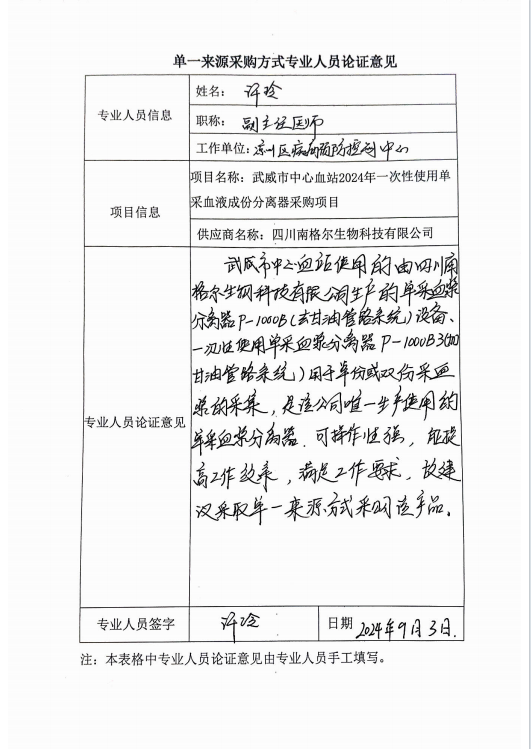 单一来源采购方式专业人员论证意见
专业人员信息
姓名：许玲
职称：副主任医师
工作单位：凉州区疾病预防控制中心
项目信息
项目名称：武威市中心血站2024年一次性使用单
采血液成份分离器采购项目
供应商名称：四川南格尔生物科技有限公司
专业人员论证意见
武威市中心血站使用的由四川南
格尔生物科技有限公司生产的单采血浆
分离器P-1000B(去甘油管路系统)设备、
一次性使用单采血浆分离器P-1000B3(加
甘油管路系统)用于单份或双份采血
浆的采集，是该公司唯一生产使用的
单采血浆分离器.可操作性强，能提
高工作效率，满足工作要求，故建
议采取单一来源方式采购该产品。
专业人员签字
许玲
日期
2024年9月3日.
注：本表格中专业人员论证意见由专业人员手工填写。